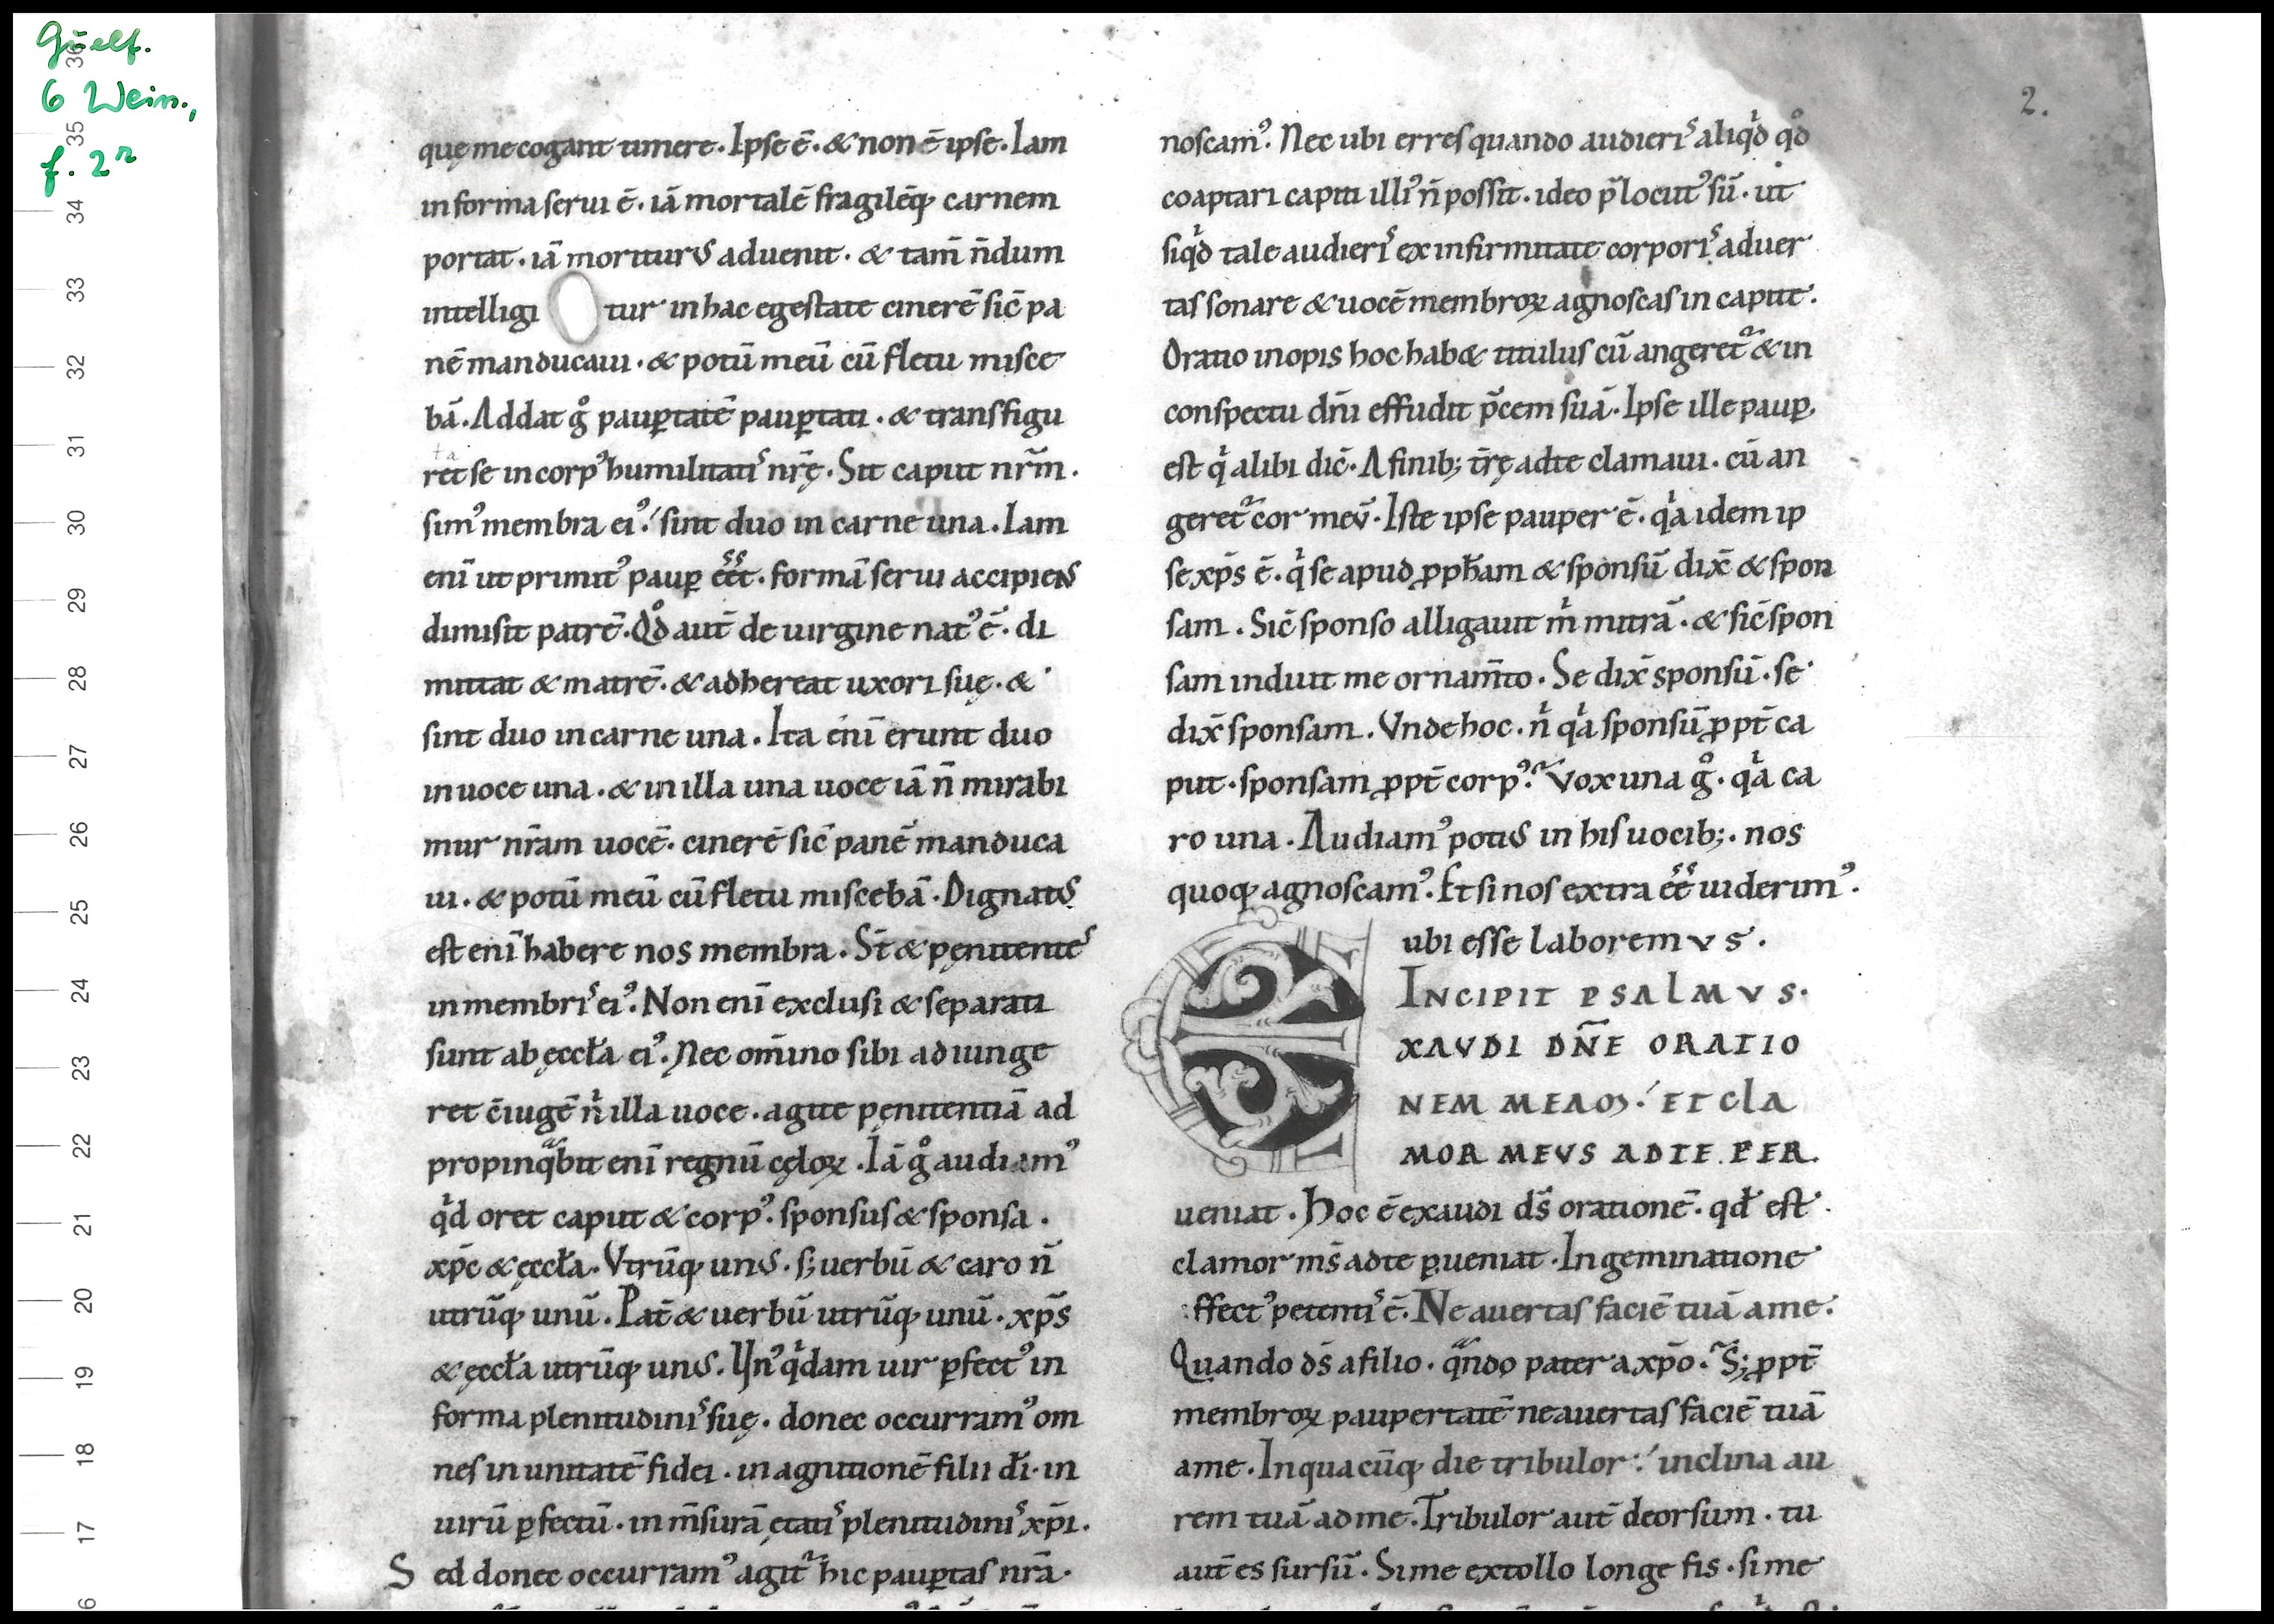 Guelf.
6 Wein.,
f. 2r
36
35
34
33
32
31
30
29
28
27
26
25
24
23
22
21
20
19
18
17
6
2.
quę me cogant timere. Ipse ē. & non ē ipse. Iam
in forma serui ē. iā mortalē fragilēq; carnem
portat. iā moriturus aduenit. & tam̄ n̄dum
intelligi tur in hac egestate cinerē sic̄ pa
nē manducaui. & potū meū cū fletu misce
bā. Addat gͦ paup̱tatē paup̱tati. & transfigu
ta
ret se in corpꝰ humilitatiˢ nr̄ę. Sit caput nr̄m.
simꝰ membra eiꝰ. sint duo in carne una. Iam
enī ut primitꝰ paup̱ eēt. formā serui accipiens
dimisit patrē. Qd̊ aut̄ de uirgine natꝰ ē. di
mittat & matrē. & adhereat uxori suę. &
sint duo in carne una. Ita enī erunt duo
in uoce una. & in illa una uoce iā n̄ mirabi
mur nr̄am uocē. cinerē sic̄ panē manduca
ui. & potū meū cū fletu miscebā. Dignatus
est enī habere nos membra. St̄ & pęnitenteˢ
in membriˢ eiꝰ. Non enī exclusi & separati
sunt ab ęccl̄a eiꝰ. Nec om̄ino sibi adiunge
ret c̄iugē nͥ illa uoce. agite pęnitentiā ad
propinqͣbit enī regnū cęloꝝ. Iā gͦ audiamꝰ
qͥd oret caput & corpꝰ. sponsus & sponsa.
xp̄c & ęccl̄a. Vtrūq; unus. s; uerbū & caro n̄
utrūq; unū. Pat̄ & uerbū utrūq; unū. xp̄s
& ęccl̄a utrūq; unus. Vnꝰ qͥdam uir p̱fectꝰ in
forma plenitudiniˢ suę. donec occurramꝰ om
nes in unitatē fidei. in agnitionē filii dī. in
uirū p̱fectū. in m̄surā ętatiˢ plenitudiniˢ xp̄i.
S ed donec occurramꝰ agit᷑ hic paup̱tas nr̄a.
noscamꝰ. Nec ubi erres quando audieriˢ aliqͥd qd̊
coaptari capiti illiꝰ n̄ possit. ideo p̄locutꝰ sū. ut
siqͥd tale audieriˢ ex infirmitate corporiˢ aduer
tas sonare & uocē membroꝝ agnoscas in capite.
Oratio inopis hoc hab& titulus cū angeret᷑ & in
conspectu dn̄i effudit p̄cem suā. Ipse ille paup̱
est qͥ alibi dic̄. A finib; tr̄ę ad te clamaui. cū an
geret᷑ cor meū. Iste ipse pauper ē. qͥa idem ip
se xp̄s ē. qͥ se apud ꝓph̄am & sponsū dix̄ & spon
sam. Sic̄ sponso alligauit mͥ mitrā. & sic̄ spon
sam induit me ornam̄to. Se dix̄ sponsū. se
dix̄ sponsam. Vnde hoc. nͥ qͥa sponsū ꝓpt̄ ca
put. sponsam ꝓpt̄ corpꝰ. Vox una gͦ. qͥa ca
ro una. Audiamꝰ potius in his uocib;. nos
quoq; agnoscamꝰ. Et si nos extra eē uiderimꝰ.
ubi esse laboremvs.
INCIPIT PSALMVS.
E XAVDI DN̄E ORATIO
NEM MEAM. ET CLA
MOR MEVS AD TE PER.
ueniat. Hoc ē exaudi ds̄ orationē. qd̄ est.
clamor ms̄ ad te p̱ueniat. Ingeminatione
ffectꝰ petentiˢ ē. Ne auertas faciē tuā a me.
Quando ds̄ a filio. qͣndo pater a xp̄o. S; ꝓpt̄
membroꝝ paupertatē ne auertas faciē tuā
a me. In quacūq; die tribulor. inclina au
rem tuā ad me. Tribulor aut̄ deorsum. tu
aut̄ es sursū. Si me extollo longe fis. si me